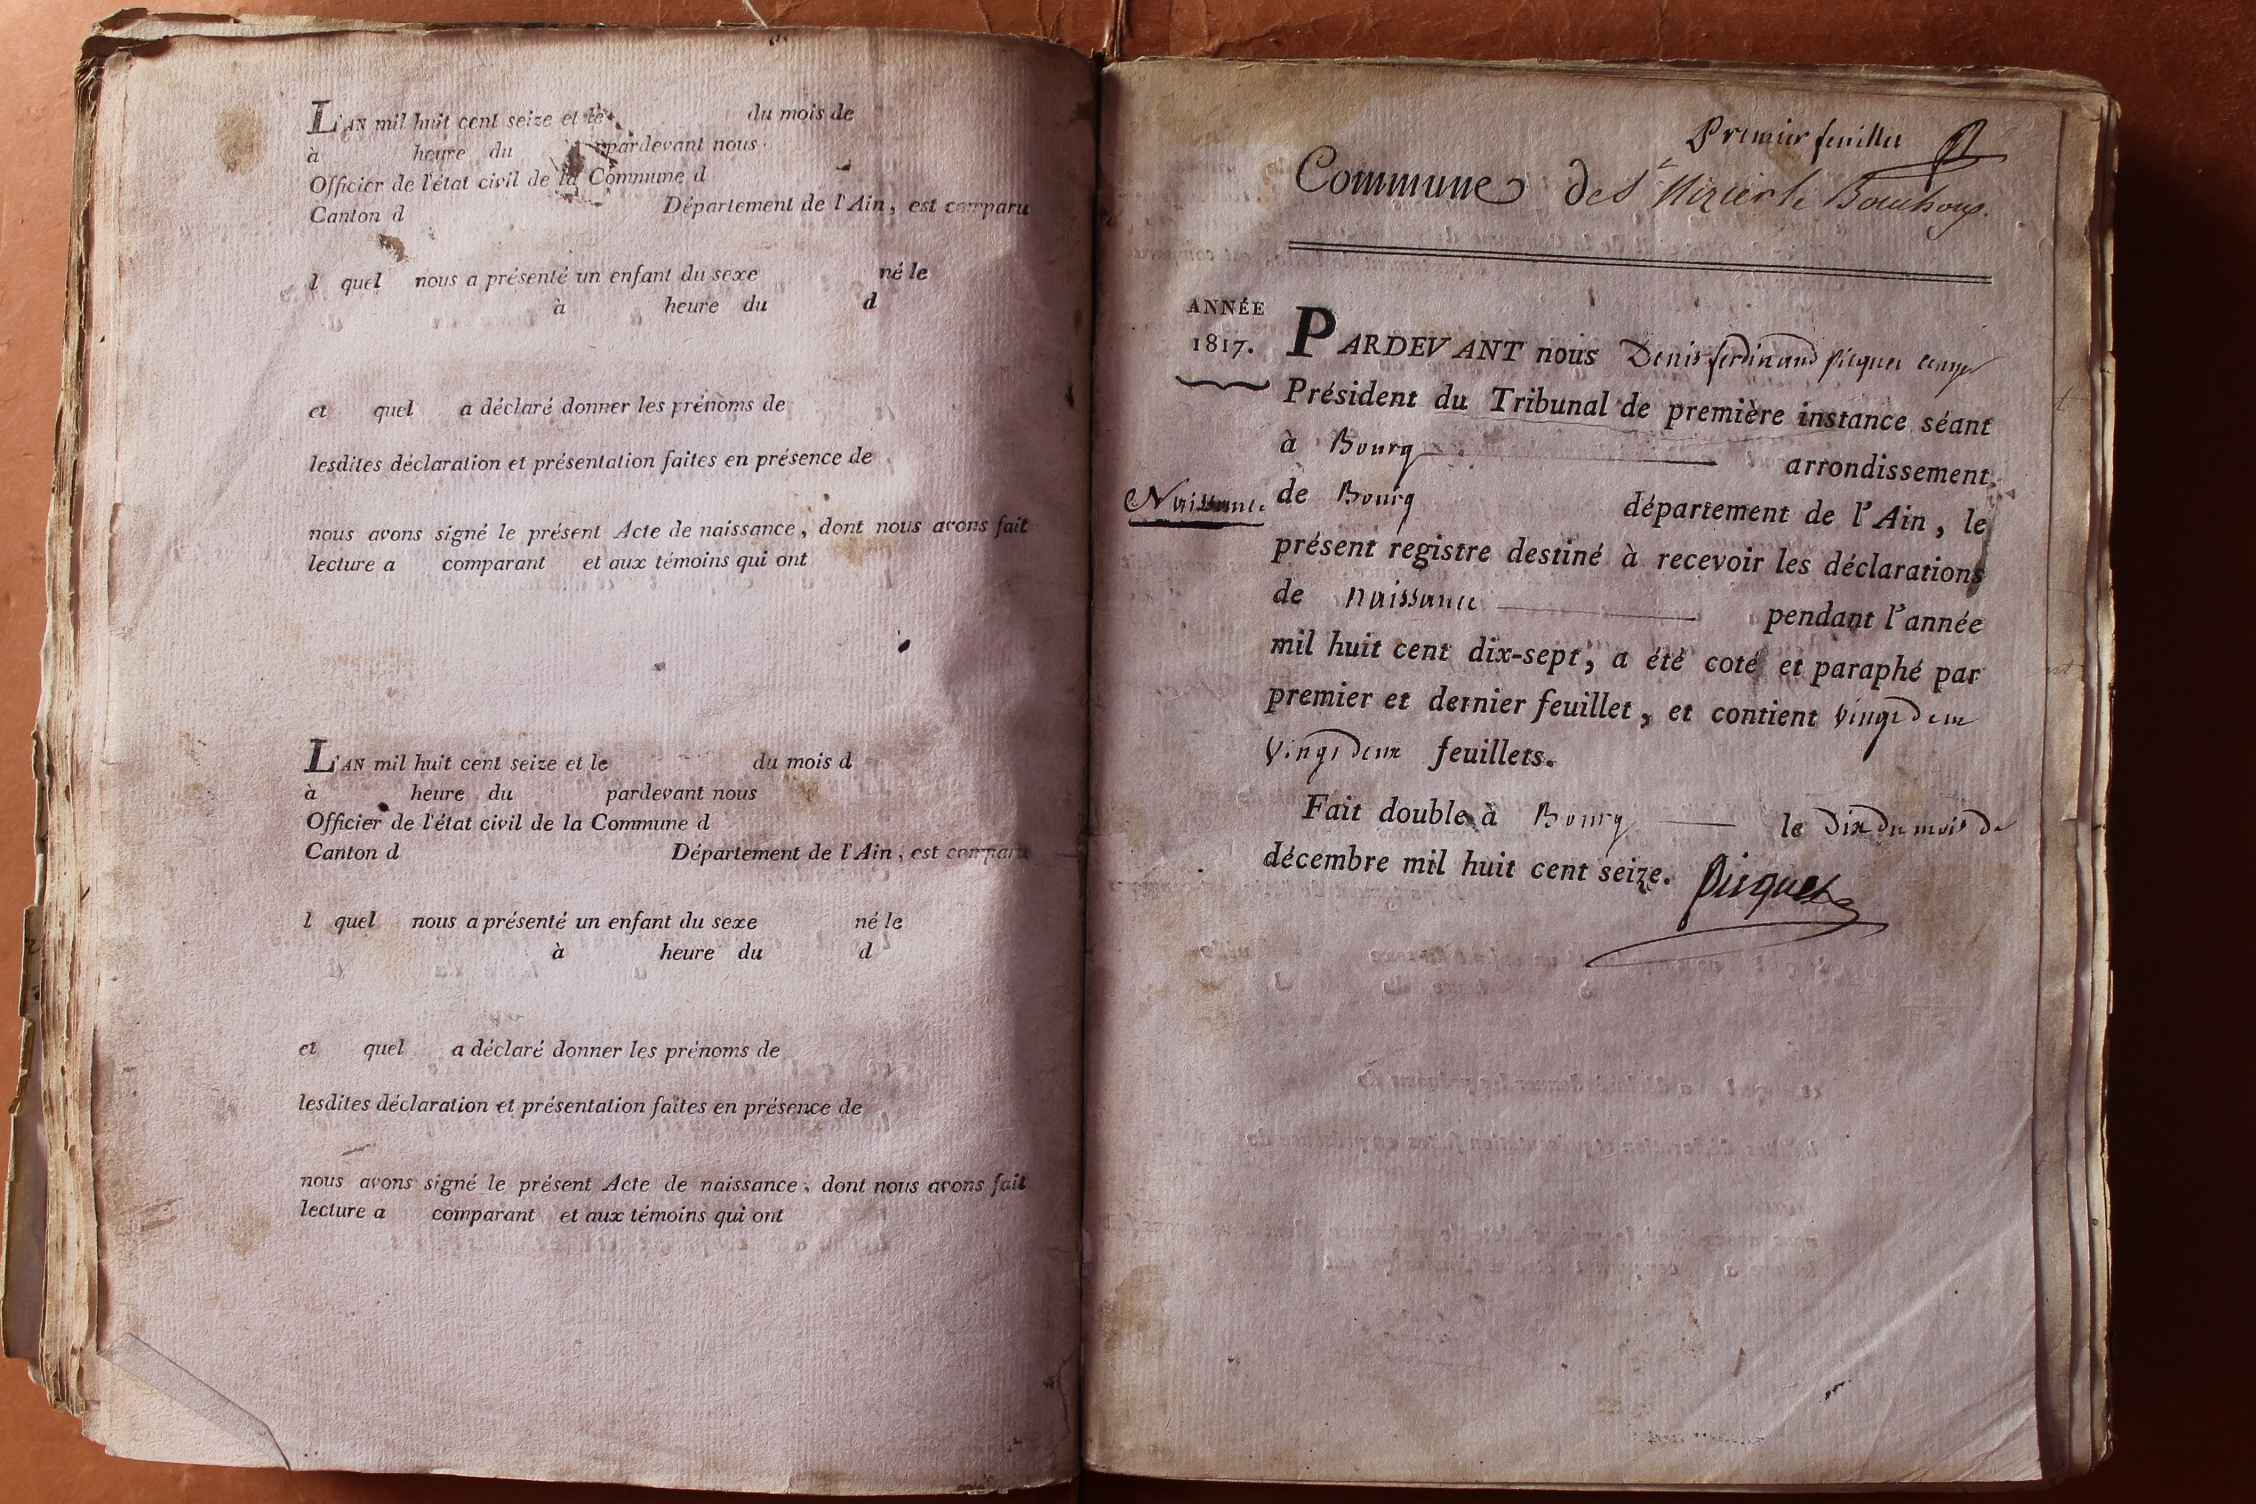 L'AN mil huit cent seize et le du mois de
à heure du pardevant nous
Officier de l'état civil de la Commune d
Canton d Département de l'Ain, est comparu
l quel nous a présenté un enfant du sexe né le
à heure du d
et quel a déclaré donner les prénoms de
lesdites déclaration et présentation faites en présence de
nous avons signé le présent Acte de naissance, dont nous avons fait
lecture a comparant et aux témoins qui ont
L'AN mil huit cent seize et le du mois d
à heure du pardevant nous
Officier de l'état civil de la Commune d
Canton d Département de l'Ain, est comparu
l quel nous a présenté un enfant du sexe né le
à heure du d
et quel a déclaré donner les prénoms de
lesdites déclaration et présentation faites en présence de
nous avons signé le présent Acte de naissance, dont nous avons fait
lecture a comparant et aux témoins qui ont
Premier feuillet
Commune de St Nizier le Bouchoux.
ANNÉE
1817.
Naissance
PARDEVANT nous Denis ferdinand picquet
Président du Tribunal de première instance séant
à Bourg arrondissement
de Bourg département de l'Ain, le
présent registre destiné à recevoir les déclarations
de naissance pendant l'année
mil huit cent dix-sept, a été coté et paraphé par
premier et dernier feuillet, et contient vingt deux
vingt deux feuillets.
Fait double à Bourg le dix du mois de
décembre mil huit cent seize. Picquet